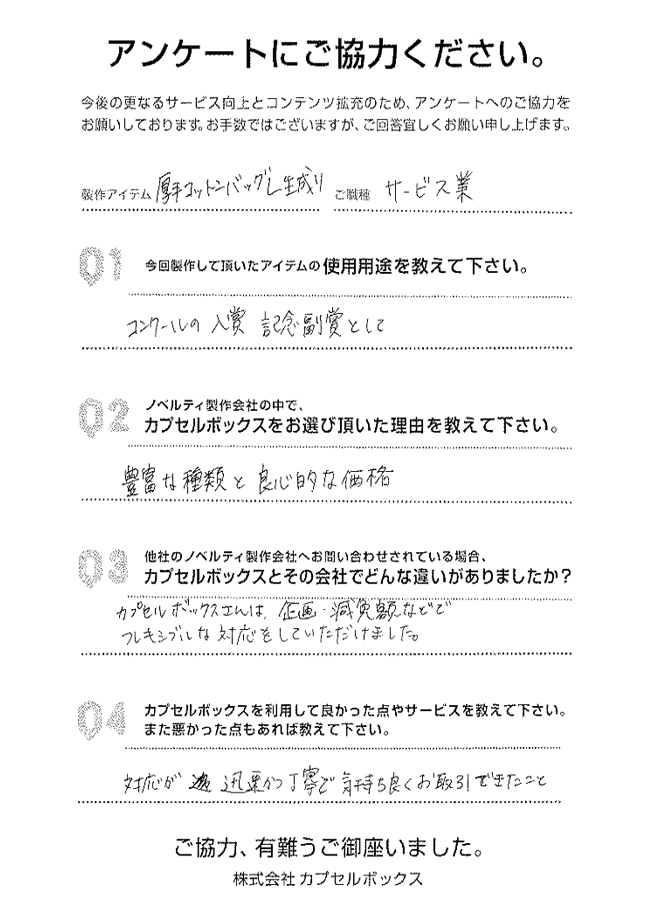 アンケートにご協力ください。
今後の更なるサービス向上とコンテンツ拡充のため、アンケートへのご協力を
お願いしております。お手数ではございますが、ご回答宜しくお願い申し上げます。
製作アイテム 厚手コットンバッグL生成り ご職種 サービス業
Q1 今回製作して頂いたアイテムの使用用途を教えて下さい。
コンクールの入賞 記念副賞として
Q2 ノベルティ製作会社の中で、
カプセルボックスをお選び頂いた理由を教えて下さい。
豊富な種類と良心的な価格
Q3 他社のノベルティ製作会社へお問い合わせされている場合、
カプセルボックスとその会社でどんな違いがありましたか?
カプセルボックスさんは、企画・減免額などで
フレキシブルな対応をしていただけました。
Q4 カプセルボックスを利用して良かった点やサービスを教えて下さい。
また悪かった点もあれば教えて下さい。
対応が 迅速かつ丁寧で気持ち良くお取引できたこと
ご協力、有難うご御座いました。
株式会社 カプセルボックス